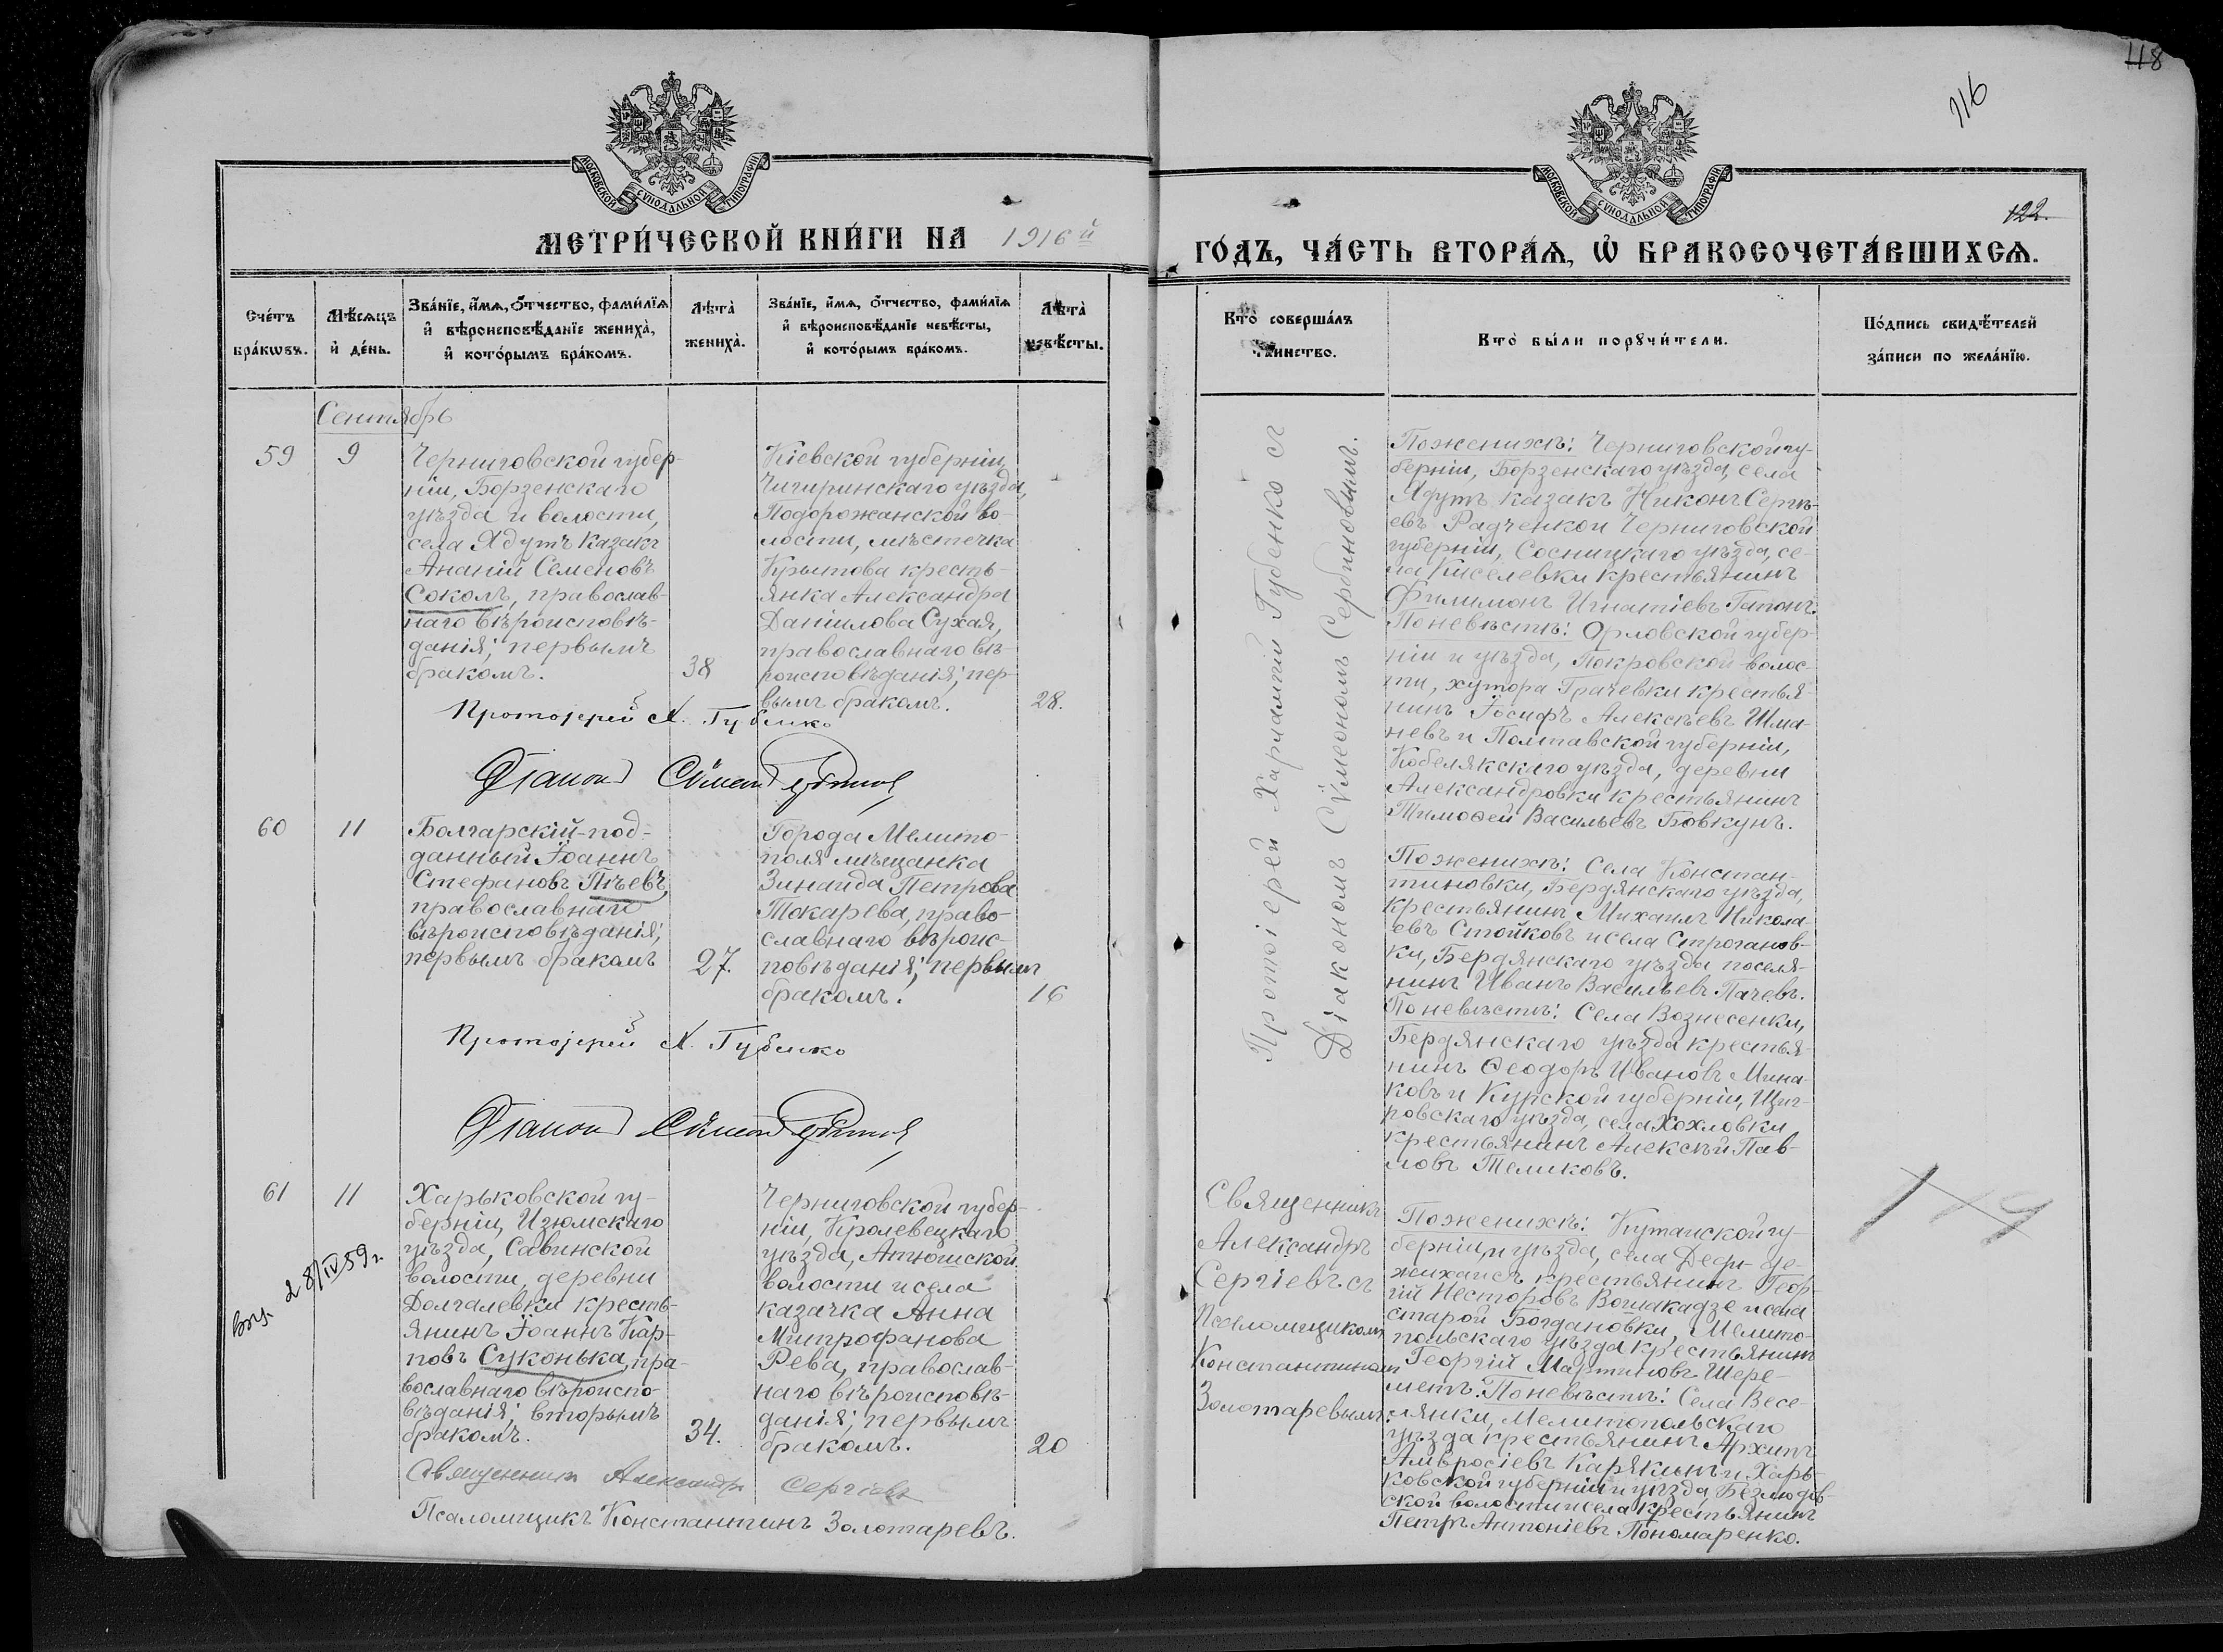 118
116
122.
МОСКОВСКОЙ СѴНОДАЛЬНОЙ ТИПОГРАФІИ
МОСКОВСКОЙ СѴНОДАЛЬНОЙ ТИПОГРАФІИ
МЕТРИ́ЧЕСКОЙ КНИ́ГИ НА 1916й
ГО́ДЪ, ЧА́СТЬ ВТОРА́Ѧ, Ѡ҆ БРАКОСОЧЕТА́ВШИХСѦ.
Сче́тъ
бра́кѡвъ.
Мѣ́сѧцъ
и҆ де́нь.
Зва́нїе, и҆́мѧ, ѻ҆́тчество, фами́лїѧ
и҆ вѣроисповѣ́данїе жениха̀,
и҆ кото́рымъ бра́комъ.
Лѣ́та̀
жениха̀.
Зва́нїе, и҆́мѧ, ѻ҆́тчество, фами́лїѧ
и҆ вѣроисповѣ́данїе невѣ́сты,
и҆ кото́рымъ бра́комъ.
Лѣ́та̀
невѣ́сты.
Кто̀ соверша́лъ
та́инство.
Кто̀ бы́ли порꙋчи́тели.
По́дпись свидѣ́телей
за́писи по жела́нїю.
Сентябрь
59
9
Черниговской губер-
ніи, Борзенскаго
уѣзда и волости,
села Ядутъ казакъ
Ананій Семеновъ
Соколъ, православ-
наго вѣроисповѣ-
данія; первымъ
бракомъ.
38
Кіевской губерніи,
Чигиринскаго уѣзда,
Подорожанской во-
лости, мѣстечка
Крылова кресть-
янка Александра
Даніилова Сухая,
православнаго вѣ-
роисповѣданія; пер-
вымъ бракомъ.
28.
Протоіерей Х. Губенко
Діаконъ Сѵмеонъ
60
11
Болгарскій-под-
данный Іоаннъ
Стефановъ Пѣевъ,
православнаго
вѣроисповѣданія;
первымъ бракомъ
27.
Города Мелито-
поля мѣщанка
Зинаида Петрова
Токарева, право-
славнаго вѣроис-
повѣданія; первымъ
бракомъ.
16
Протоіерей Х. Губенко
Діаконъ Сѵмеонъ
61
11
28/IV 59г.
Харьковской гу-
берніи, Изюмскаго
уѣзда, Савинской
волости, деревни
Долгалевки кресть-
янинъ Іоаннъ Кар-
повъ Суконька, пра-
вославнаго вѣроиспо-
вѣданія; вторымъ
бракомъ.
34.
Черниговской губер-
ніи, Кролевецкаго
уѣзда, Атюшской
волости и села
казачка Анна
Митрофанова
Рева, православ-
наго вѣроисповѣ-
данія; первымъ
бракомъ.
20
Священникъ Александръ Сергіевъ
Псаломщикъ Константинъ Золотаревъ.
Протоіерей Харлампій Губенко съ
Діакономъ Сѵмеономъ Сербиновымъ.
По женихѣ: Черниговской гу-
берніи, Борзенскаго уѣзда, села
Ядутъ казакъ Никонъ Сергѣ-
евъ Радченко и Черниговской
губерніи, Сосницкаго уѣзда, се-
ла Киселевки крестьянинъ
Филимонъ Игнатіевъ Гапонъ.
По невѣстѣ: Орловской губер-
ніи и уѣзда, Покровской волос-
ти, хутора Грачевки крестья-
нинъ Іосифъ Алексѣевъ Шма-
невъ и Полтавской губерніи,
Кобелякскаго уѣзда, деревни
Александровки крестьянинъ
Тимоѳей Васильевъ Бовкунъ.
По женихѣ: Села Констан-
тиновки, Бердянскаго уѣзда,
крестьянинъ Михаилъ Никола-
евъ Стойковъ и села Строганов-
ки, Бердянскаго уѣзда поселя-
нинъ Иванъ Васильевъ Пачевъ.
По невѣстѣ: Села Вознесенки,
Бердянскаго уѣзда крестья-
нинъ Ѳеодоръ Ивановъ Мина-
ковъ и Курской губерніи, Щиг-
ровскаго уѣзда, села Хохловки
крестьянинъ Алексѣй Пав-
ловъ Теликовъ.
Священникъ
Александръ
Сергіевъ съ
Псаломщикомъ
Константиномъ
Золотаревымъ.
По женихѣ: Кутаиской гу-
берніи, и уѣзда, села
крестьянинъ Геор-
гій Несторовъ Вошакадзе и села
старой Богдановки, Мелито-
польскаго уѣзда крестьянинъ
Георгій Мартиновъ Шере-
метъ. По невѣстѣ: Села Весе-
лянки, Мелитопольскаго
уѣзда крестьянинъ Архипъ
Амвросіевъ Карякинъ и Харь-
ковской губерніи и уѣзда, Безлюдов-
ской волости и села крестьянинъ
Петръ Антоніевъ Пономаренко.